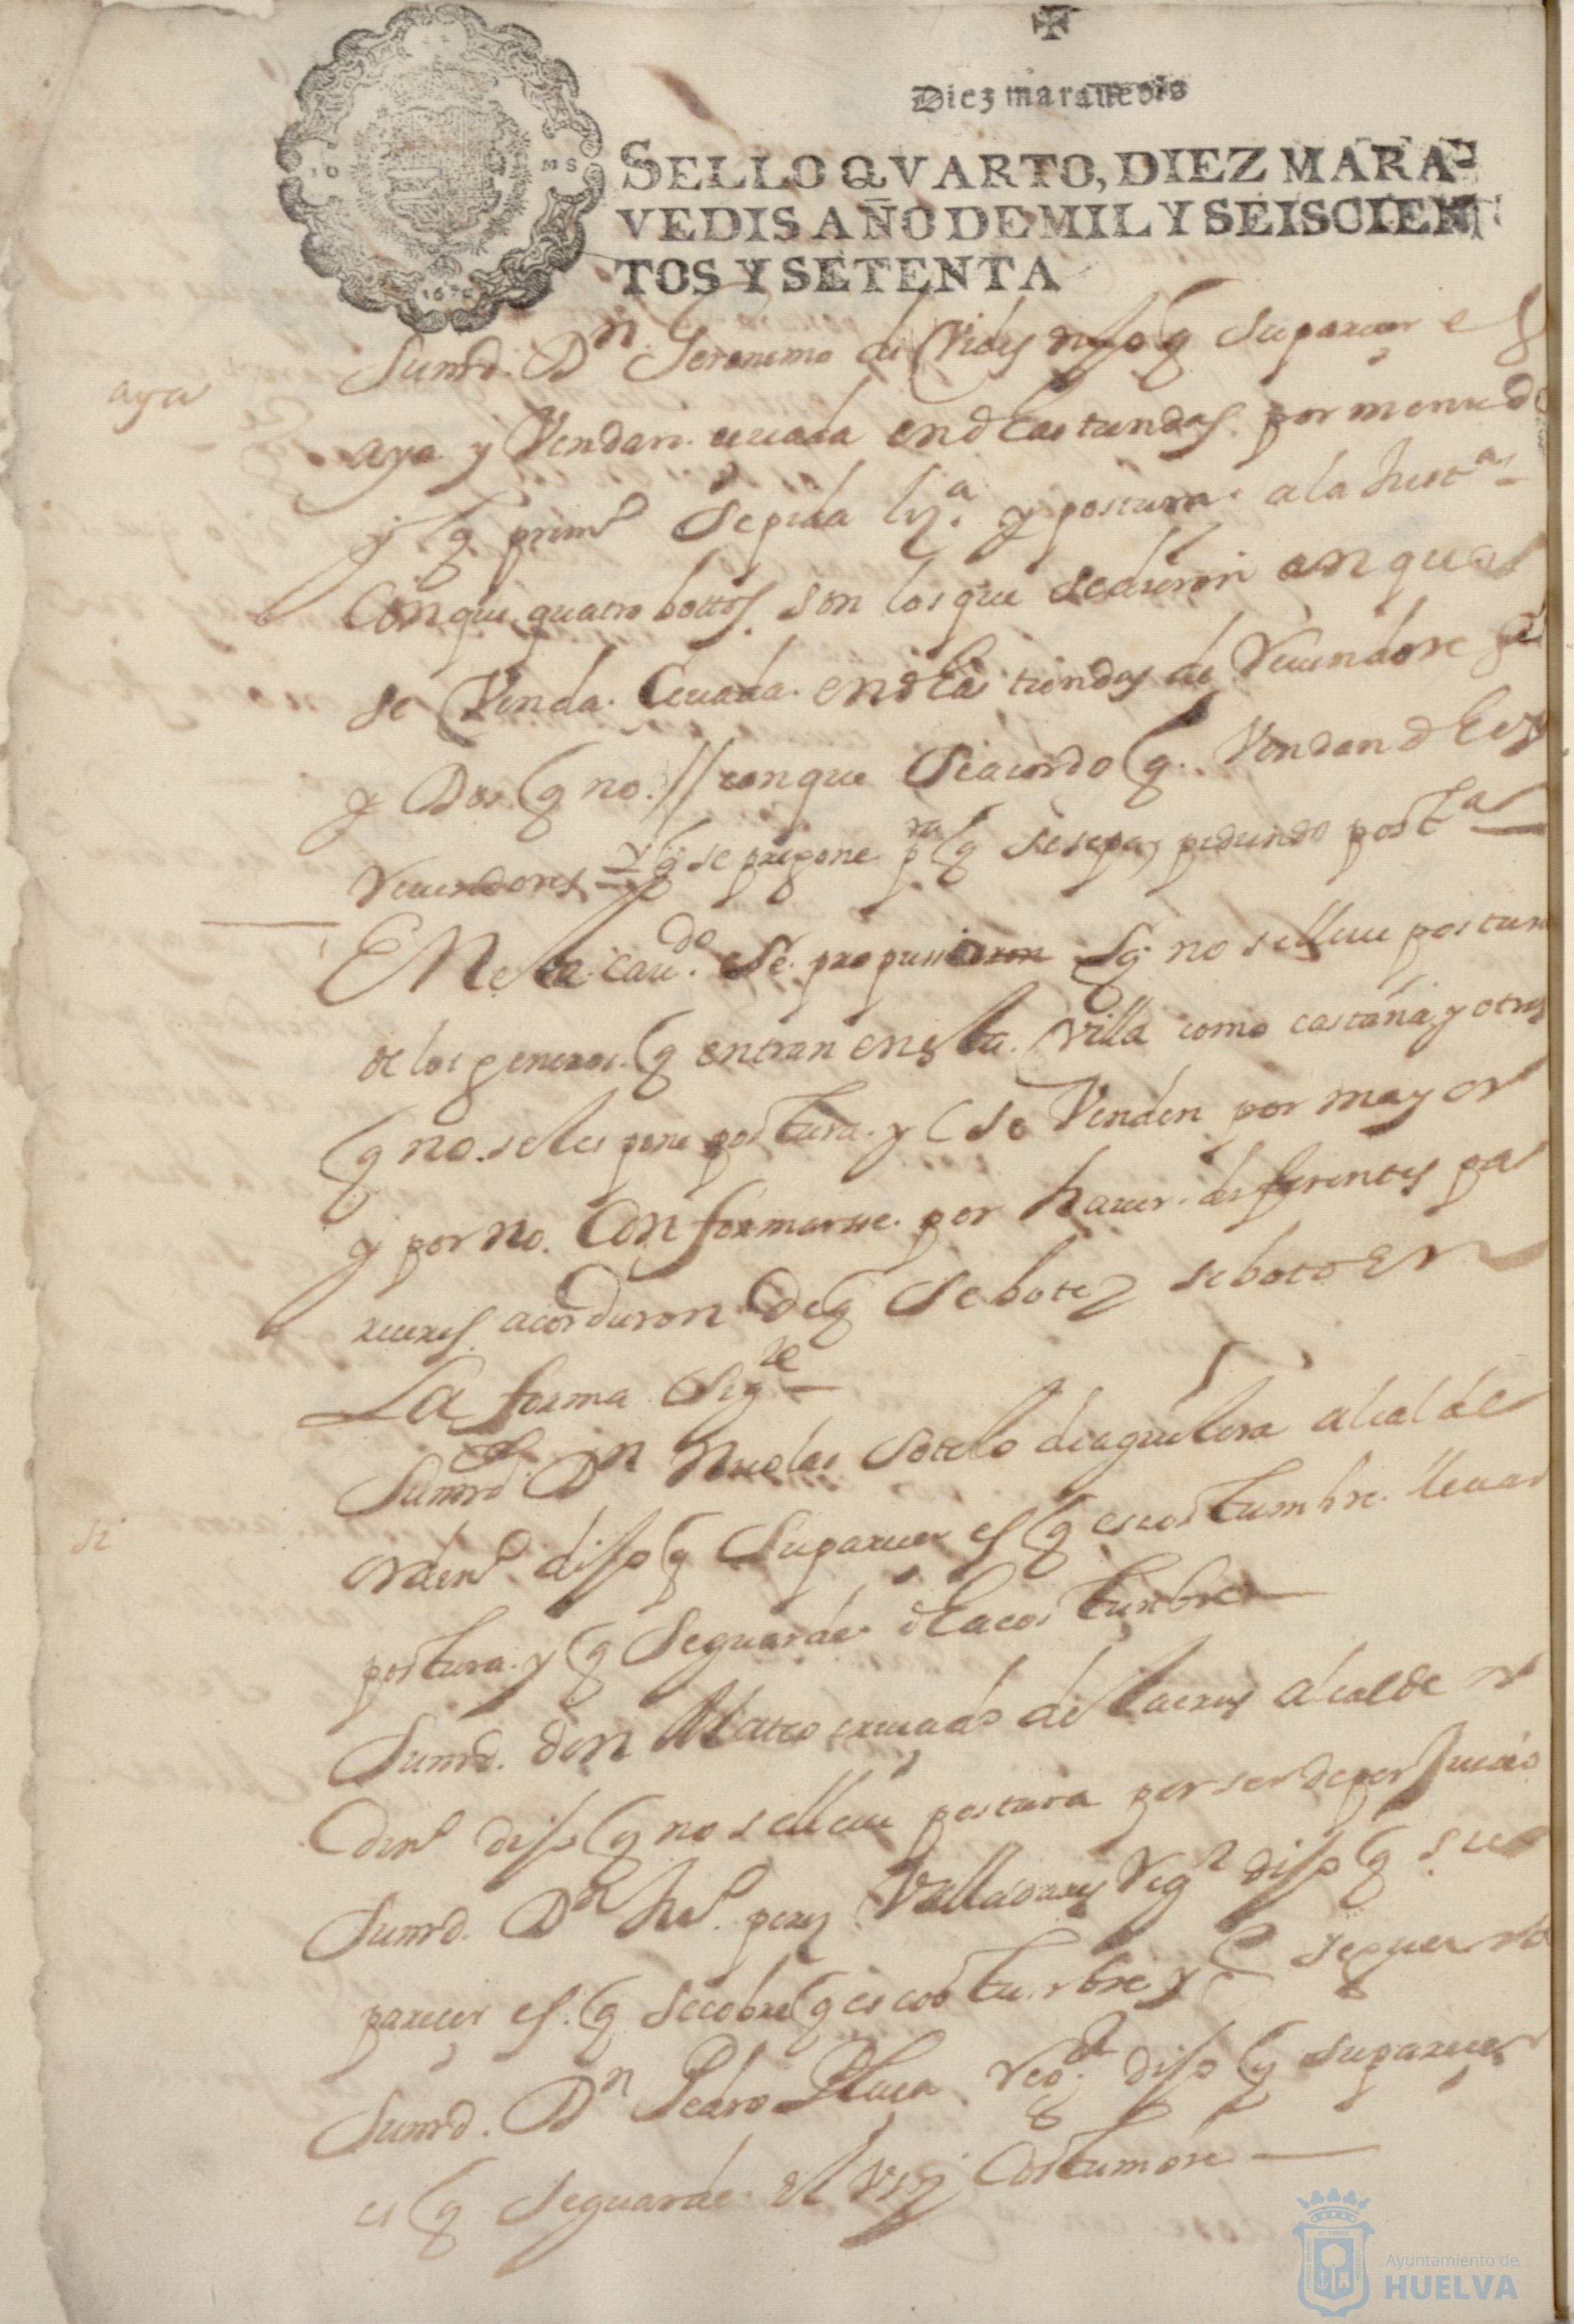 Diez maravedis
SELLO QVARTO, DIEZ MARA-
VEDIS AÑO DE MIL Y SEISCIEN
TOS Y SETENTA
1670
Sumrd. Dn. Geronimo de Vides dijo q su parecer es
aya
aya y Vendan. ceuada en las tiendas por menudo
y q primo se pida lizª. y postura. a la Justª
Con que quatro bottos son los que dieron en que
se Venda. Ceuada. en las tiendas de Reuendore
y Dos q no. // con que se acordo q. Vendan
Reuendores y q se pregone pra q se sepa, pidiendo postª
EN este caudo. se propusieron q no se lleue postura
de los generos. q entran en esta. Villa como castaña y otros
q no. se les pone postura. y se Venden por mayor
y por no. Conformarse. por hauer. diferentes pa
receres. acordaron de q se bote y se boto EN
La forma Sigte
Sumrd. Dn Nicolas Sotelo de aguilera alcalde
si
ordino dijo q Su parecer es q es costumbre. lleuar
postura. y q Se guarde. la costumbre
Sumrd. don Mateo alcalde or
dino dijo q no se lleue postura por ser de perjuicio
Sumrd. Dn perez Valladares Regr dijo q su
parecer es. q se cobre q es costumbre y
Sumrd. Dn Pedro Regr. dijo q su parecer
es q se guarde el Uso y Costumbre
Ayuntamiento de
HUELVA